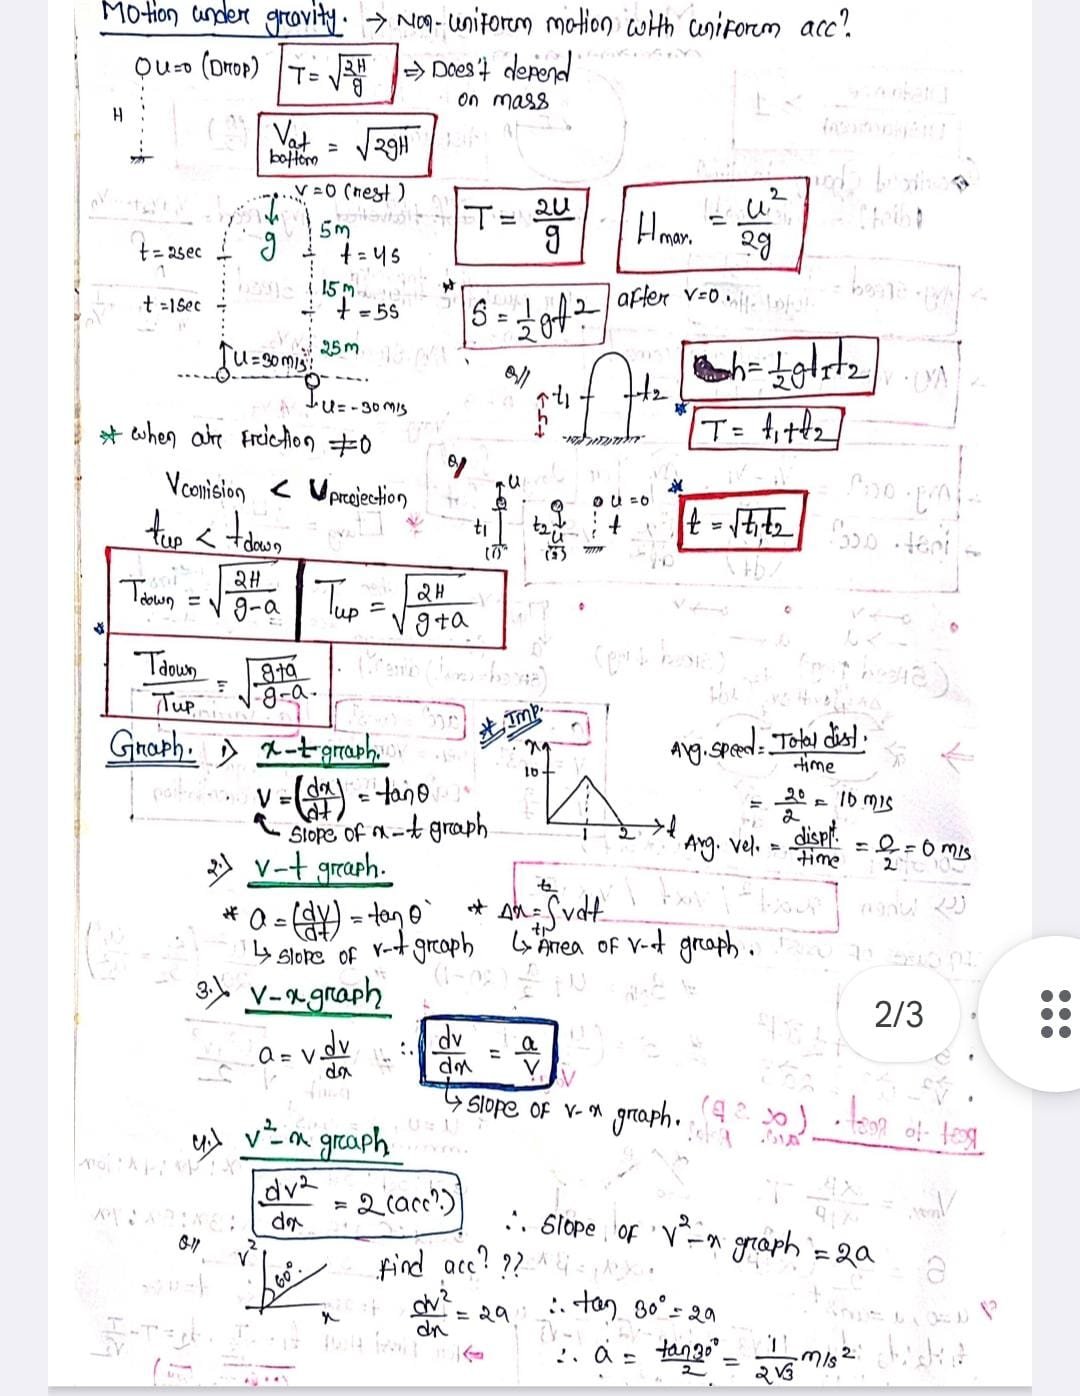 Motion under gravity. → Non-uniform motion with uniform accⁿ
u=0 (Drop) T = √(2H/g) ⇒ Does't depend
on mass
H
V at bottom = √2gH
v=0 (rest)
T = 2u/g
H max. = u²/2g
g
5m
t=2sec
t=4s
15m
t=1sec
t=5s
* S = ½gt² after v=0.
25m
u=30m/s
u=-30m/s
Q// h t₁ t₂ h=½gt₁t₂
* T = t₁+t₂
* when air friction ≠0
Vcollision < Uprojection
tup < tdown
Q/ u t₁ (1) t₂ u (2) u=0 t
* t = √t₁t₂
* Tdown = √(2H/g-a) Tup = √(2H/g+a)
Tdown/Tup = √(g+a/g-a).
Graph. 1) x-t graph.
v = (dx/dt) = tanθ
Slope of x-t graph
* Imp.
x 10 1 2 t
Avg. Speed = Total dist./time
= 20/2 = 10 m/s
Avg. Vel. = displt./time = 0/2 = 0 m/s
2.) v-t graph.
* a = (dv/dt) = tanθ * Δx = ∫t₁t₂ vdt
↳ slope of v-t graph ↳ Area of v-t graph.
3.) v-x graph
a = v dv/dx ∴ dv/dx = a/v
↳ slope of v-x graph.
4.) v²-x graph
dv²/dx = 2(accⁿ)
∴ Slope of v²-x graph = 2a
Q// v² 60° x find accⁿ ??
dv²/dx = 2a ∴ tan 30° = 2a
∴ a = tan30°/2 = 1/2√3 m/s²
2/3